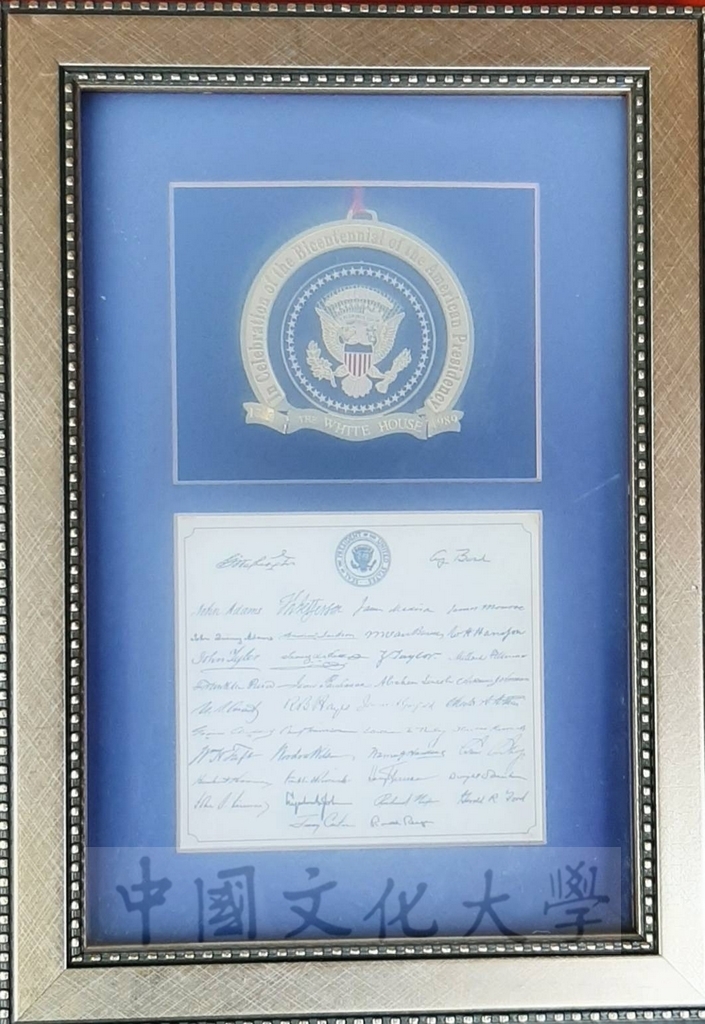 In Celebration of the Bicentennial of the American Presidency
THE WHITE HOUSE 1989
PRESIDENT OF THE UNITED STATES
G Washington Geo Bush
John Adams Th Jefferson James Madison James Monroe
John Quincy Adams Andrew Jackson M Van Buren W H Harrison
John Tyler Z Taylor Millard Fillmore
Franklin Pierce James Buchanan Abraham Lincoln Andrew Johnson
U. S. Grant R B Hayes Chester A Arthur
Wm H Taft Woodrow Wilson Warren G Harding Calvin Coolidge
Herbert Hoover Harry Truman Dwight D Eisenhower
John F Kennedy Lyndon B Johnson Richard Nixon Gerald R. Ford
Jimmy Carter Ronald Reagan
中國文化大學